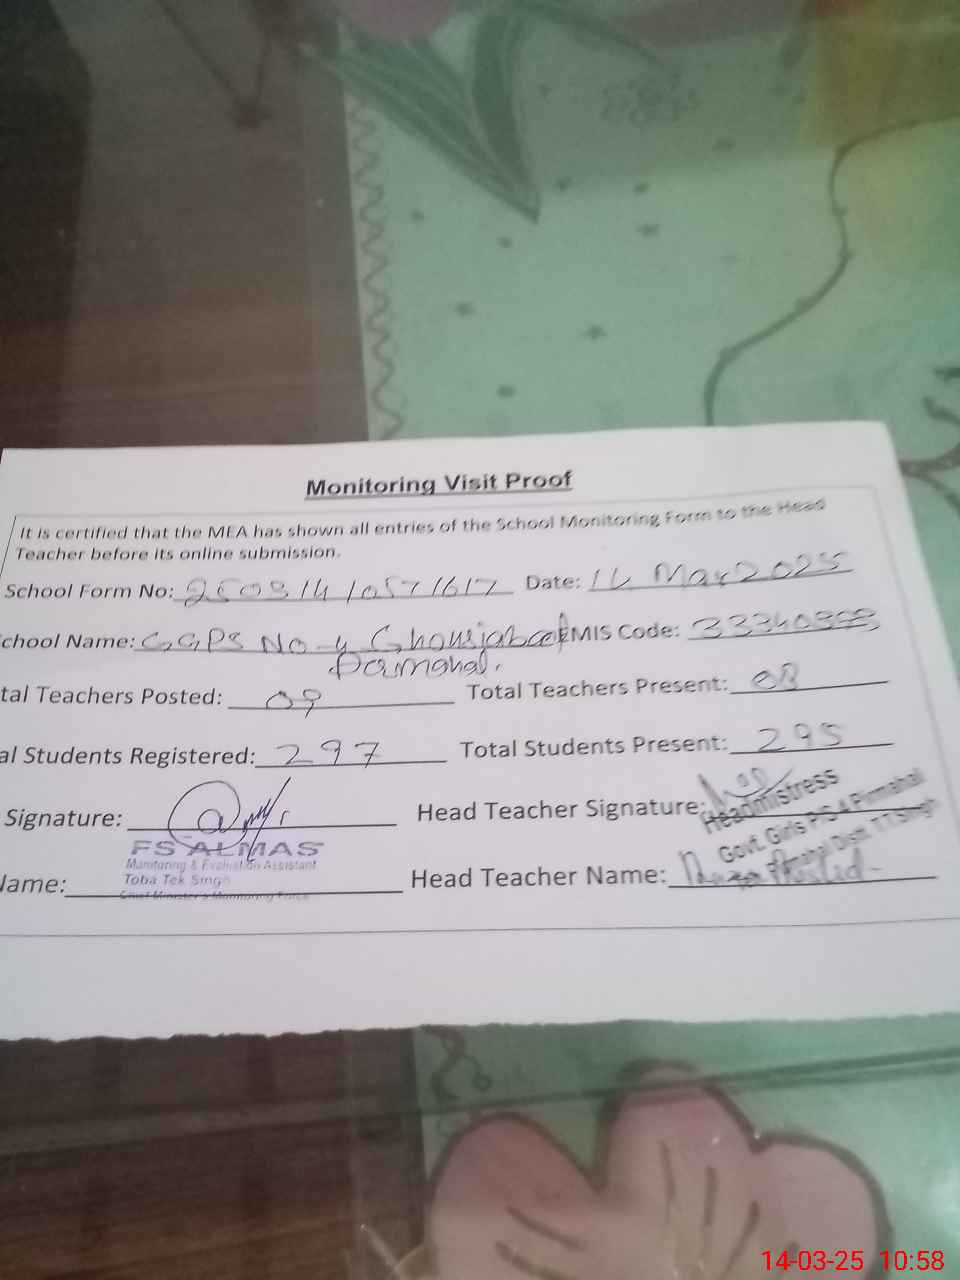 Monitoring Visit Proof
It is certified that the MEA has shown all entries of the School Monitoring Form to the Head
Teacher before its online submission.
School Form No: Date: 14 Mar 2025
chool Name: GGPS No 4 EMIS Code:
tal Teachers Posted: 09 Total Teachers Present: 08
al Students Registered: 297 Total Students Present: 295
Signature: Head Teacher Signature:
Headmistress
FS ALMAS
Govt. Girls P/S 4 Pirmahal
Monitoring & Evaluation Assistant
Toba Tek Singh
Pirmahal Distt. T.T.Singh
Name: Head Teacher Name:
Chief Minister's Monitoring Force
14-03-25 10:58